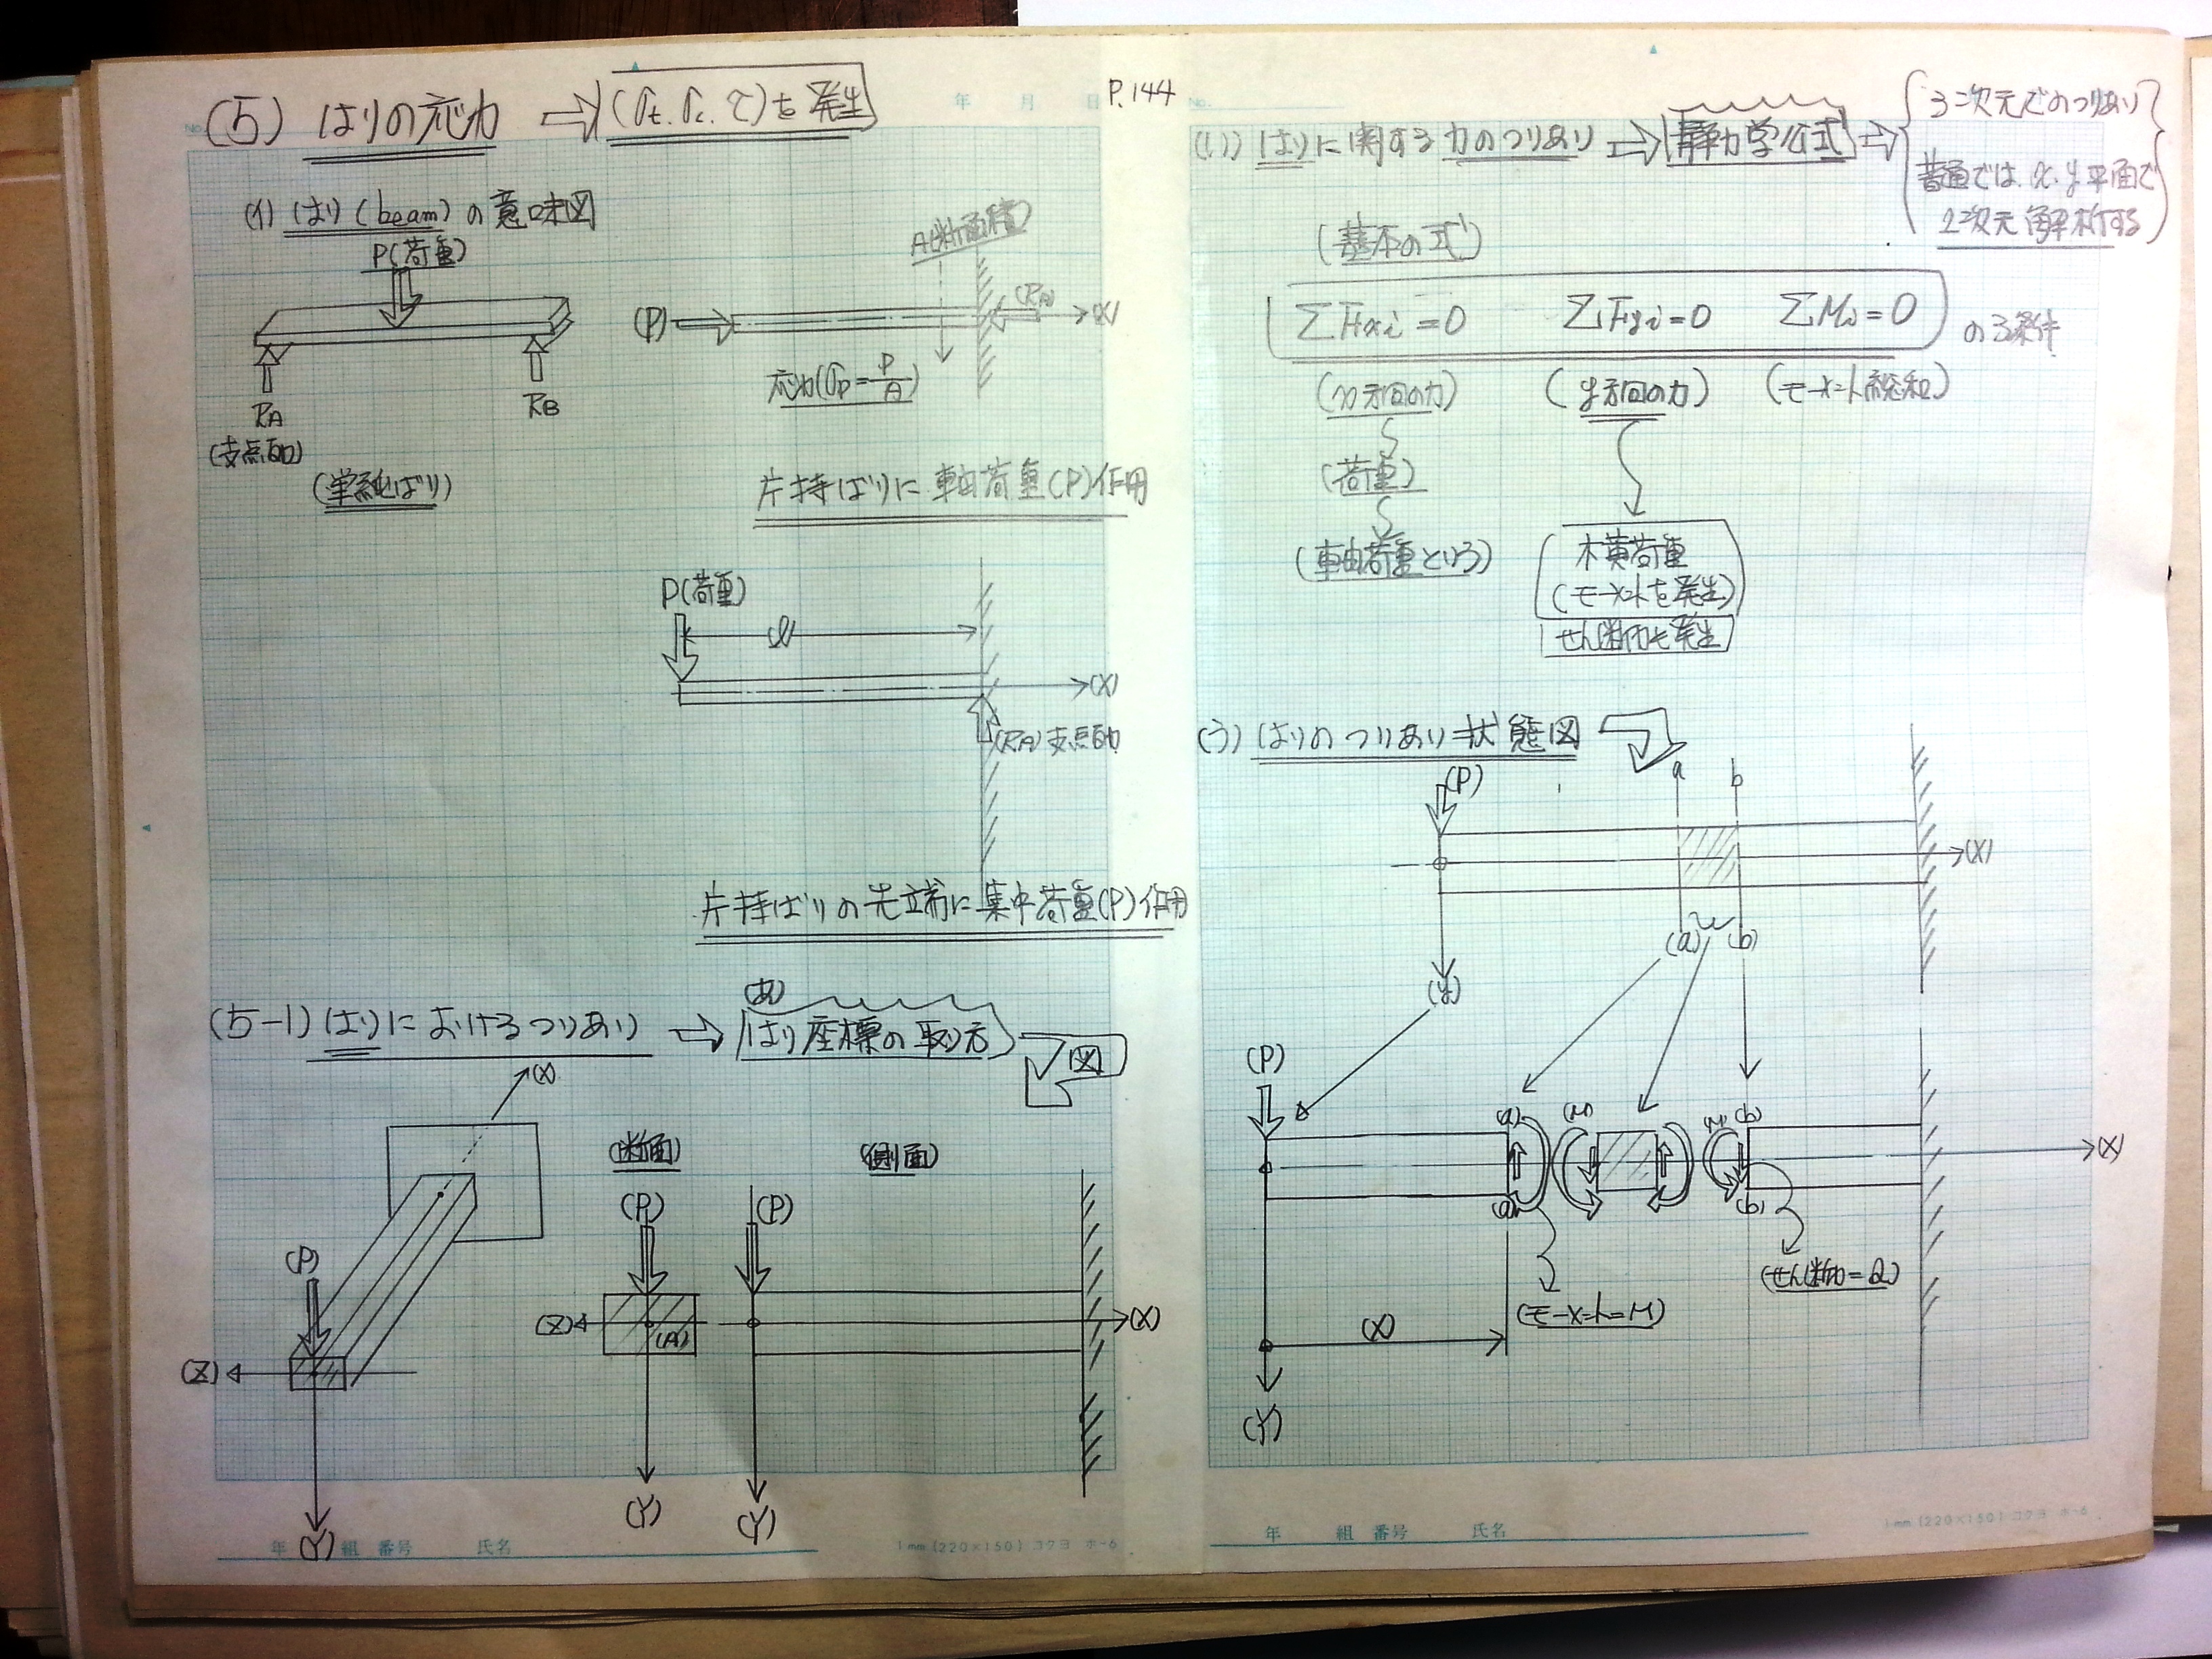 P.144
(5) はりの応力 ⇒ (σt. σc. τ)を発生
(イ) はり(beam)の意味図
P(荷重)
RA
(支点反力)
RB
(単純ばり)
A(断面積)
(P)
(RA)
(X)
応力(σp=P/A)
片持ばりに軸荷重(P)作用
P(荷重)
l
(X)
(RA)支点反力
片持ばりの先端に集中荷重(P)作用
(5-1) はりにおけるつりあい ⇒ (あ)
はり座標の取り方
図
(X)
(P)
(Z)
(Y)
(断面)
(P)
(Z)
(A)
(Y)
(側面)
(P)
(X)
(Y)
年 組 番号 氏名
1mm (220×150) コクヨ ホ-6
年 月 日
No.
(い) はりに関する力のつりあい ⇒ 静力学公式 ⇒
3次元でのつりあい
普通では、x.y平面で
2次元解析する
(基本の式)
ΣFxi=0 ΣFyi=0 ΣMi=0 の3条件
(x方向の力) (y方向の力) (モーメント総和)
(荷重)
(軸荷重という)
横荷重
(モーメントを発生)
せん断力も発生
(う) はりのつりあい状態図
(P)
a b
(X)
(a) (b)
(y)
(P)
(a) (M) (M) (b)
(X)
(a) (b)
(モーメント=M)
(せん断力=Q)
(X)
(Y)
年 組 番号 氏名
1mm (220×150) コクヨ ホ-6